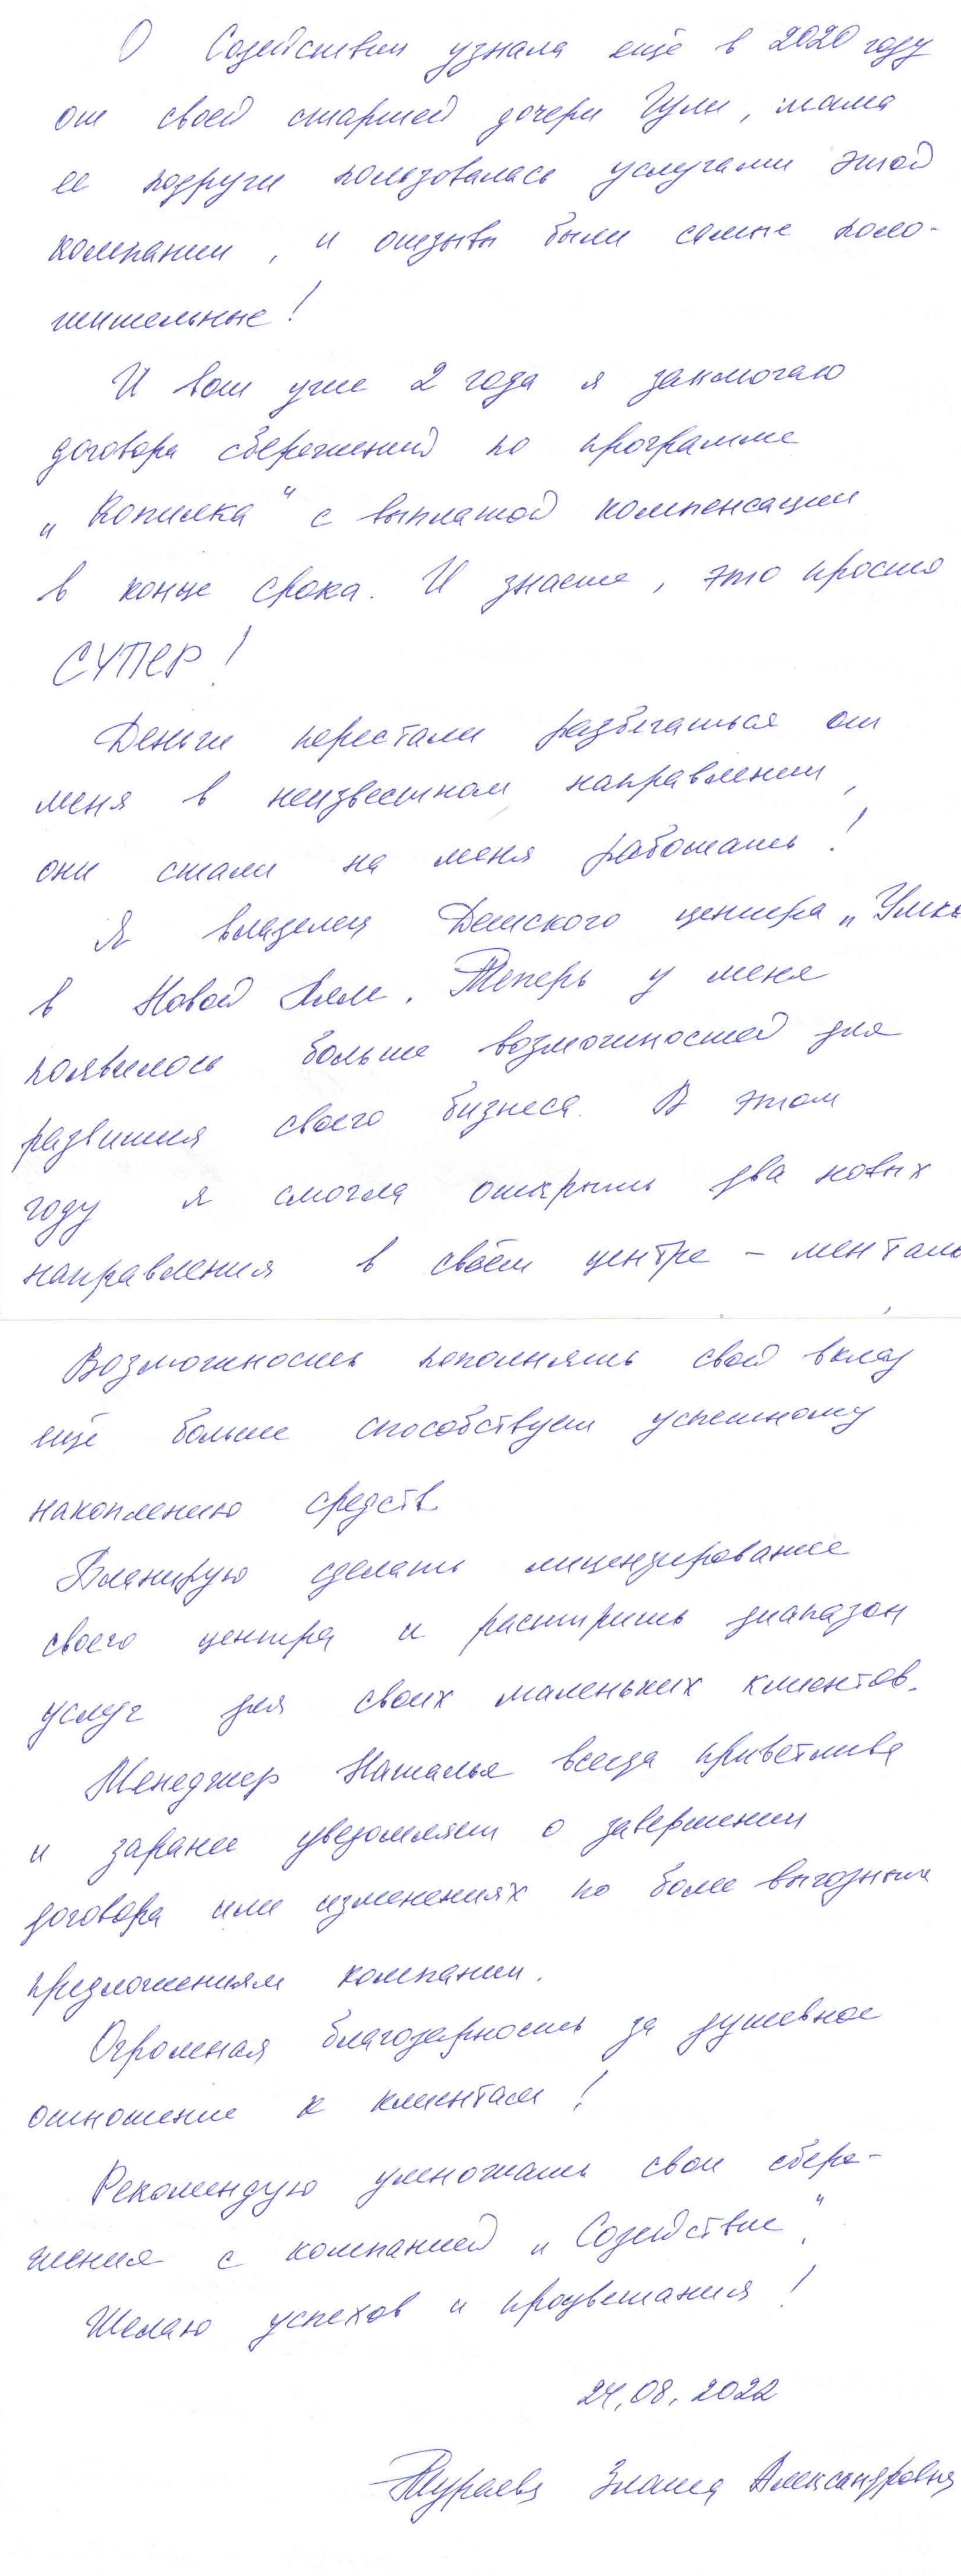 О Содействии узнала ещё в 2020 году
от своей старшей дочери Гули, мама
ее подруги пользовалась услугами этой
компании, и отзывы были самые поло-
жительные!
И вот уже 2 года я заключаю
договора сбережений по программе
"Копилка" с выплатой компенсации
в конце срока. И знаете, это просто
СУПЕР!
Деньги перестали разбегаться от
меня в неизвестном направлении,
они стали на меня работать!
Я владелец Детского центра "Умка
в Новой Ляле. Теперь у меня
появилось больше возможностей для
развития своего бизнеса. В этом
году я смогла открыть два новых
направления в своём центре - менталь
Возможность пополнять свой вклад
ещё больше способствует успешному
накоплению средств.
Планирую сделать лицензирование
своего центра и расширить диапазон
услуг для своих маленьких клиентов.
Менеджер Наталья всегда приветлива
и заранее уведомляет о завершении
договора или изменениях по более выгодным
предложениям компании.
Огромная благодарность за душевное
отношение к клиентам!
Рекомендую умножать свои сбере-
жения с компанией "Содействие".
Желаю успехов и процветания!
24.08.2022
Тураева Злата Александровна